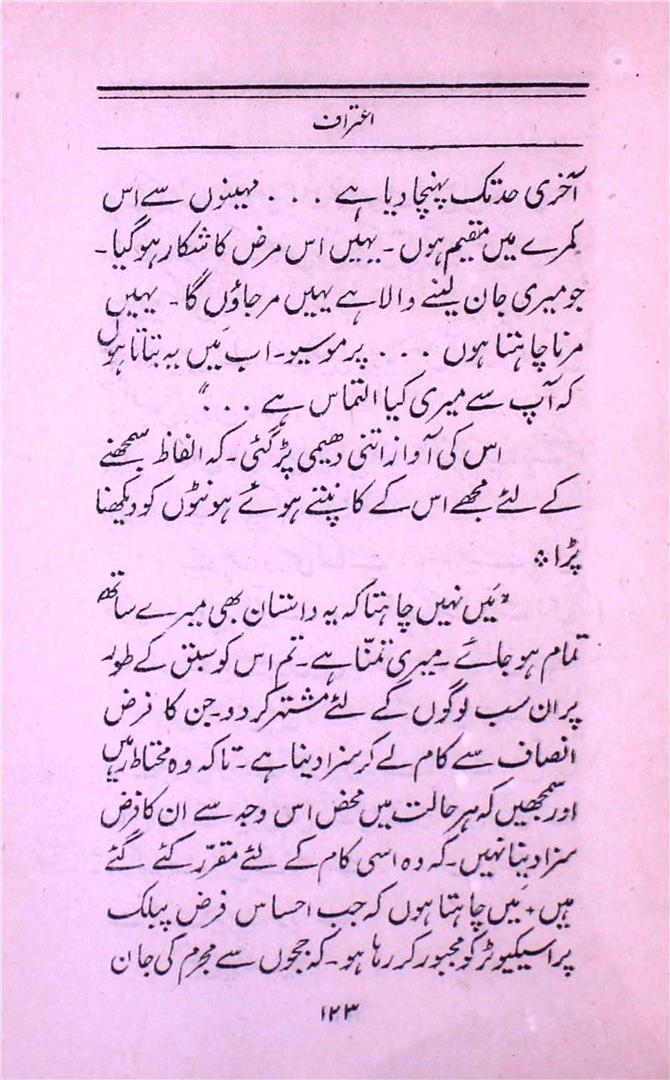 اعتراف
آخری حد تک پہنچا دیا ہے . . . مہینوں سے اس
کمرے میں مقیم ہوں ۔ یہیں اس مرض کا شکار ہو گیا ۔
جو میری جان لینے والا ہے یہیں مر جاؤں گا ۔ یہیں
مرنا چاہتا ہوں . . . پر موسیو ۔ اب مَیں یہ بتاتا ہوں
کہ آپ سے میری کیا التماس ہے . . . “
اس کی آواز اتنی دھیمی پڑ گئی ۔ کہ الفاظ سمجھنے
کے لئے مجھے اس کے کانپتے ہوئے ہونٹوں کو دیکھنا
پڑا ٭
”مَیں نہیں چاہتا کہ یہ داستان بھی میرے ساتھ
تمام ہو جائے ۔ میری تمنّا ہے ۔ تم اس کو سبق کے طور
پر ان سب لوگوں کے لئے مشتہر کر دو ۔ جن کا فرض
انصاف سے کام لے کر سزا دینا ہے ۔ تاکہ وہ محتاط رہیں
اور سمجھیں کہ ہر حالت میں محض اس وجہ سے ان کا فرض
سزا دینا نہیں ۔ کہ وہ اسی کام کے لئے مقرّر کئے گئے
ہیں ٭ مَیں چاہتا ہوں کہ جب احساس فرض پبلک
پراسیکیوٹر کو مجبور کر رہا ہو ۔ کہ ججوں سے مجرم کی جان
۱۲۳